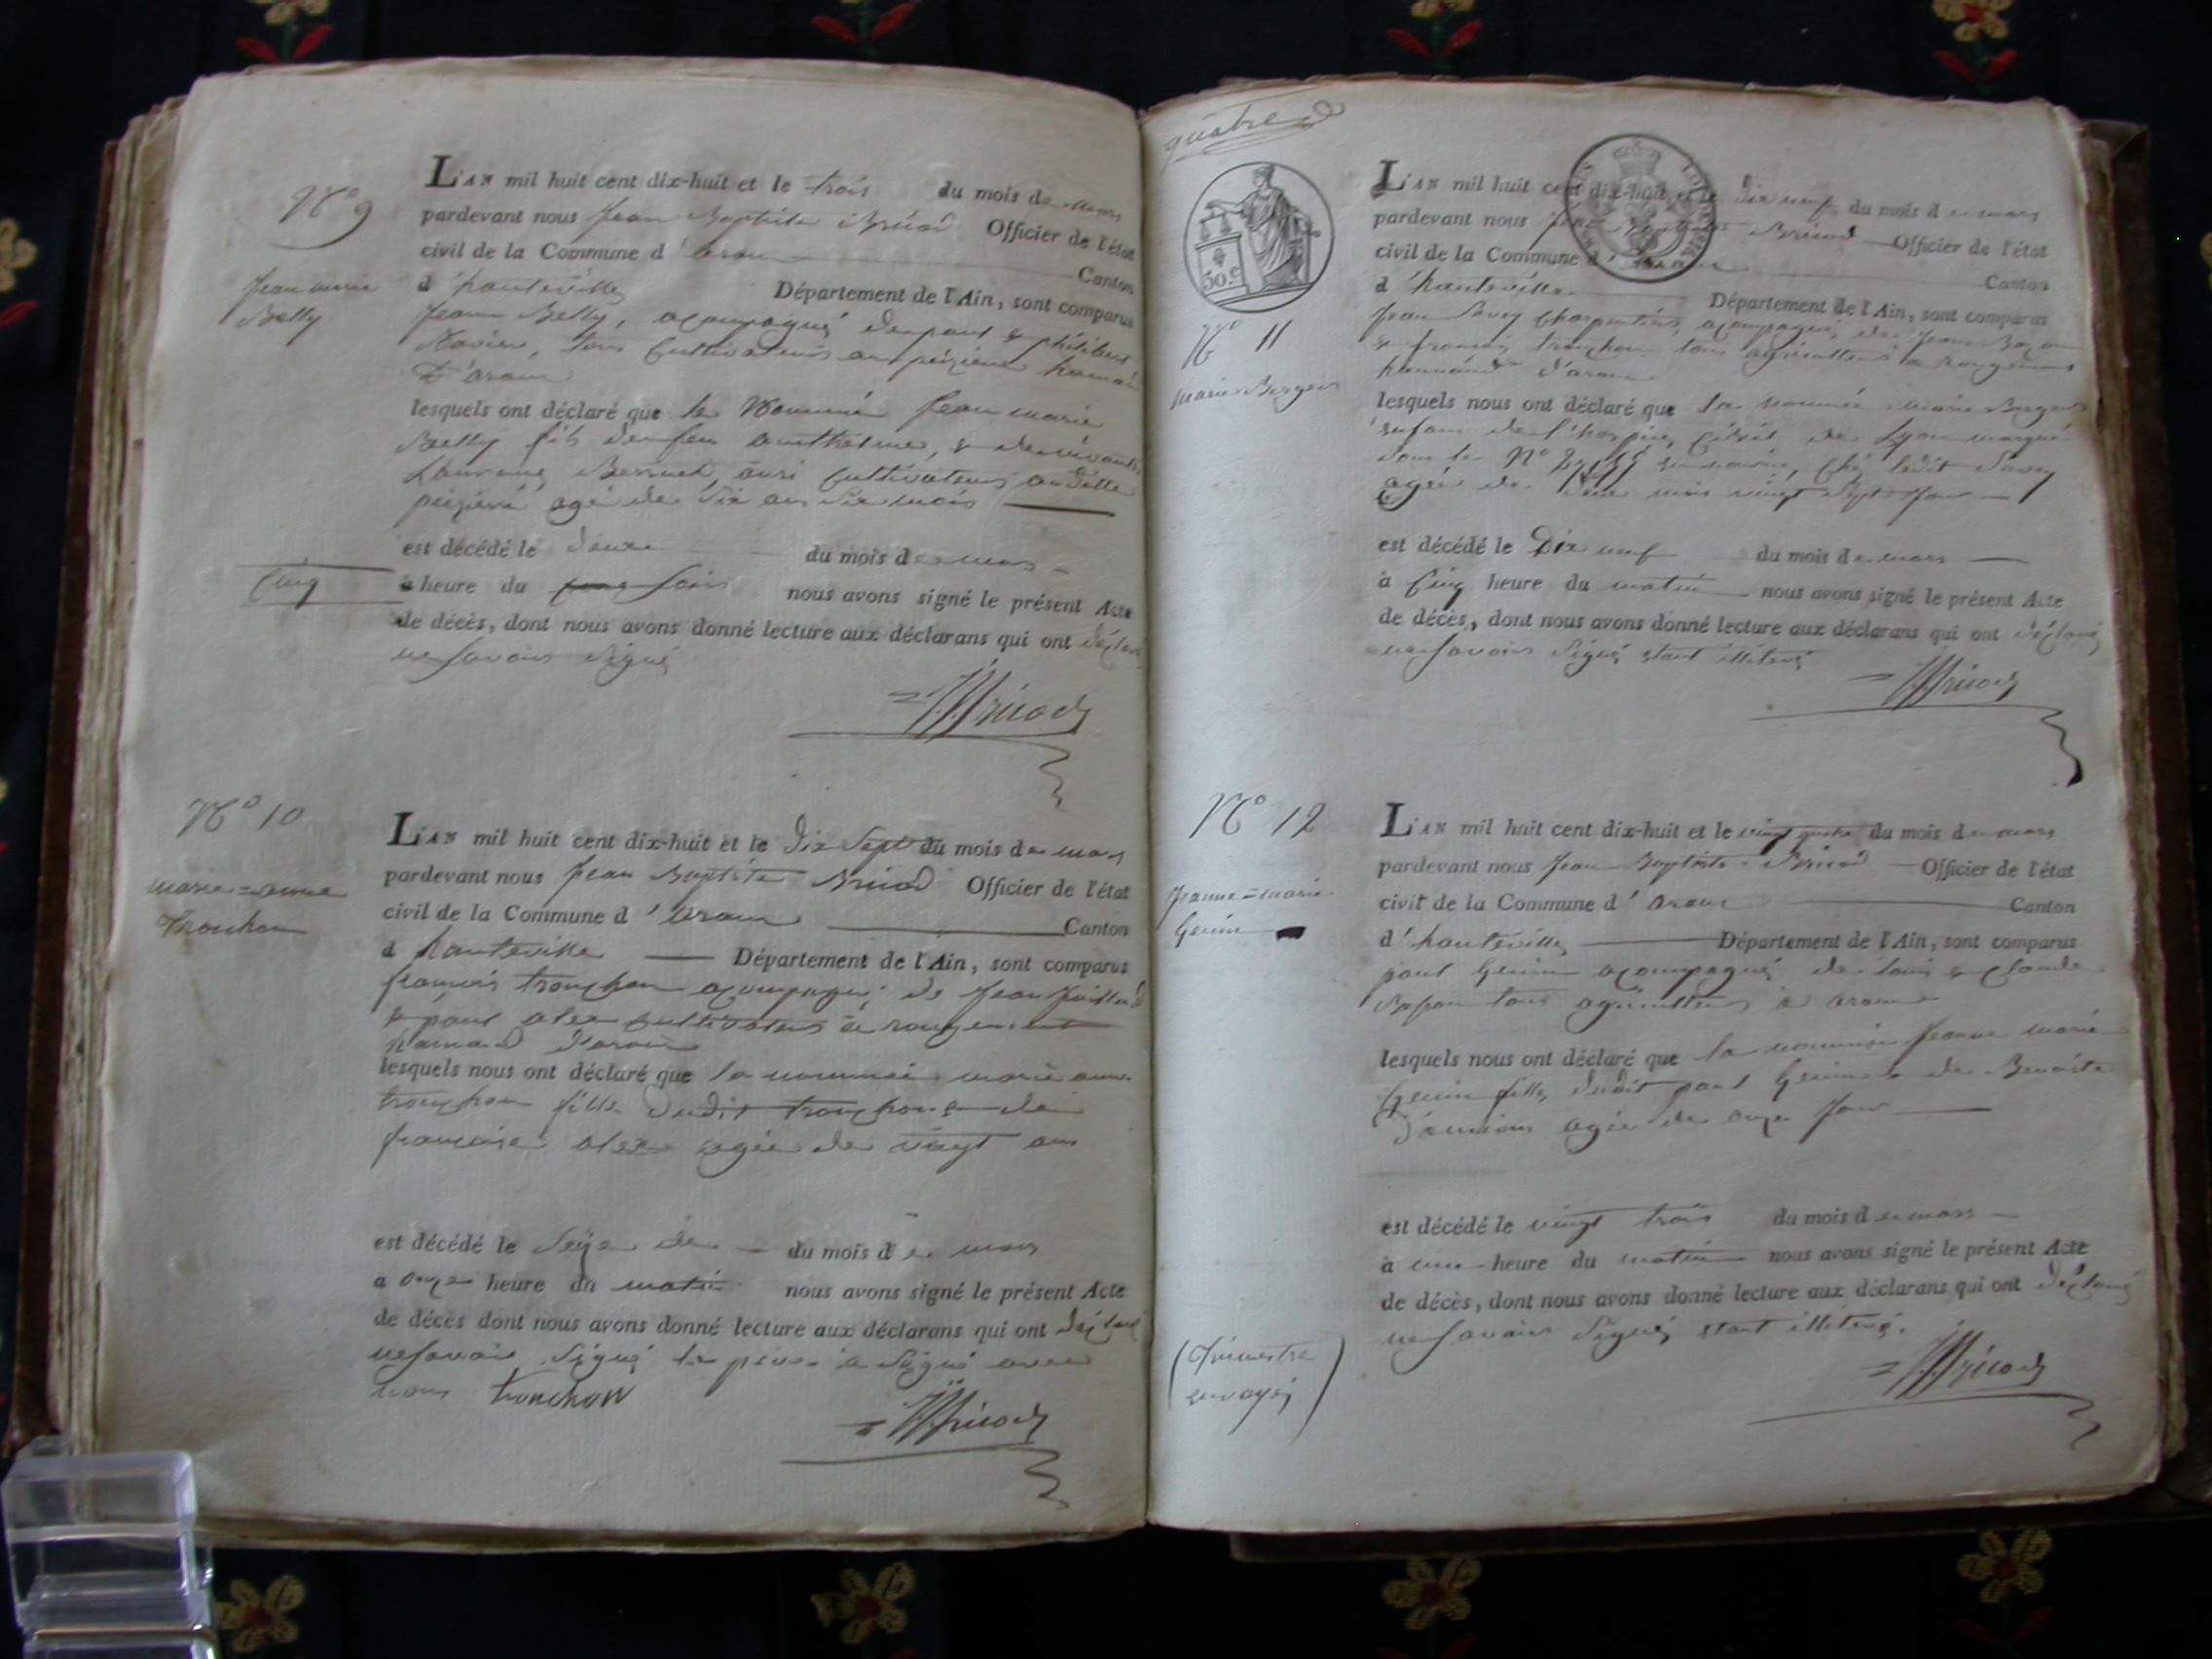 N.o 9
Jean marie
Belly
L'AN mil huit cent dix-huit et le trois du mois de mars
pardevant nous Jean Baptiste Bricod Officier de l'état
civil de la Commune d'aranc Canton
d'hauteville Département de l'Ain, sont comparus
Jean Belly, acompagné de paul & philibert
tous cultivateurs hamau
D'aranc
lesquels ont déclaré que le Nommé Jean marie
Belly fils de feu anthelme, &
cultivateurs
agé de dix ans six mois
est décédé le deux du mois de mars
Cinq
à heure du soir nous avons signé le présent Acte
de décès, dont nous avons donné lecture aux déclarans qui ont déclaré
ne savoir signé
Bricod
N.o 10
marie=anne
tronchon
L'AN mil huit cent dix-huit et le dix sept du mois de mars
pardevant nous Jean Baptiste Bricod Officier de l'état
civil de la Commune d'aranc Canton
d hauteville Département de l'Ain, sont comparus
francois tronchon acompagné de Jean
& paul cultivateurs à rougemont
hamau d'aranc
lesquels nous ont déclaré que la nommée marie anne
tronchon fille dudit tronchon & de
francoise agée de vingt ans
est décédé le seize de du mois de mars
a onze heure du matin nous avons signé le présent Acte
de décès dont nous avons donné lecture aux déclarans qui ont déclaré
ne savoir signé le père a signé avec
nous tronchon
Bricod
quatre
50.c
N.o 11
marie Bergers
L'AN mil huit cent dix-huit et le dix neuf du mois de mars
pardevant nous Jean Baptiste Bricod Officier de l'état
civil de la Commune d'aranc Canton
d'hauteville Département de l'Ain, sont comparus
Jean Savey charpentier, acompagné de Jean
& francois tronchon tous agriculteurs a rougemont
hamau d'aranc
lesquels nous ont déclaré que la nommée marie Bergers
enfant de l'hospice civil de Lyon marqué
sous le N.o chez ledit Savey
agée de deux mois vingt sept jour
est décédé le Dix neuf du mois de mars
à cinq heure du matin nous avons signé le présent Acte
de décès, dont nous avons donné lecture aux déclarans qui ont déclaré
ne savoir signé étant
Bricod
N.o 12
Jeanne=marie
Genin
L'AN mil huit cent dix-huit et le vingt quatre du mois de mars
pardevant nous Jean Baptiste Bricod Officier de l'état
civil de la Commune d'aranc Canton
d'hauteville Département de l'Ain, sont comparus
paul Genin acompagné de louis & claude
tous agriculteurs à aranc
lesquels nous ont déclaré que la nommée Jeanne marie
Genin fille dudit paul Genin & de Benoite
agée de onze jour
est décédé le vingt trois du mois de mars
à une heure du matin nous avons signé le présent Acte
de décès, dont nous avons donné lecture aux déclarans qui ont déclaré
ne savoir signé étant
(trimestre
envoyé)
Bricod